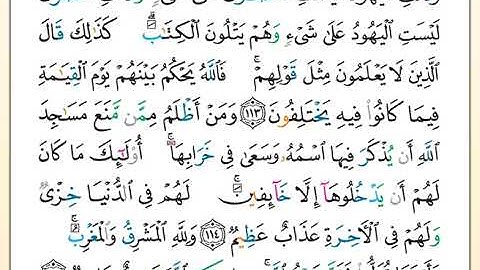 لَيْسَتِ الْيَهُودُ عَلَىٰ شَىْءٍ وَهُمْ يَتْلُونَ الْكِتَٰبَ ۗ كَذَٰلِكَ قَالَ
الَّذِينَ لَا يَعْلَمُونَ مِثْلَ قَوْلِهِمْ ۚ فَاللَّهُ يَحْكُمُ بَيْنَهُمْ يَوْمَ الْقِيَٰمَةِ
فِيمَا كَانُوا۟ فِيهِ يَخْتَلِفُونَ ١١٣ وَمَنْ أَظْلَمُ مِمَّن مَّنَعَ مَسَٰجِدَ
اللَّهِ أَن يُذْكَرَ فِيهَا اسْمُهُۥ وَسَعَىٰ فِى خَرَابِهَآ ۚ أُو۟لَٰٓئِكَ مَا كَانَ
لَهُمْ أَن يَدْخُلُوهَآ إِلَّا خَآئِفِينَ ۚ لَهُمْ فِى الدُّنْيَا خِزْىٌ
وَلَهُمْ فِى الْءَاخِرَةِ عَذَابٌ عَظِيمٌ ١١٤ وَلِلَّهِ الْمَشْرِقُ وَالْمَغْرِبُ ۚ